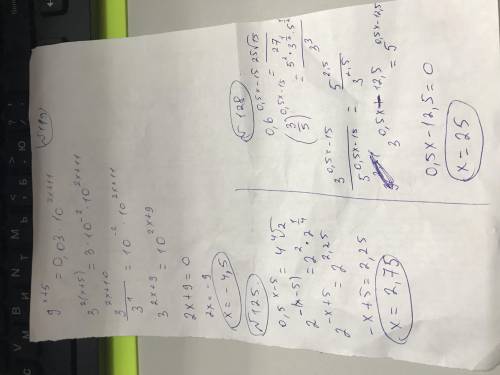 9^(x+5) = 0,03·10^(2x+11)
3^(2(x+5)) = 3·10^(-2)·10^(2x+11)
3^(2x+10) / 3^1 = 10^(-2)·10^(2x+11)
3^(2x+9) = 10^(2x+9)
2x+9=0
2x=-9
x=-4,5
N125.
0,5^(x-5) = 4∜2
2^(-(x-5)) = 2^2·2^(1/4)
2^(-x+5) = 2^(2,25)
-x+5=2,25
x=2,75
N128
0,6^(0,5x-15) = 25√15 / 27
(3/5)^(0,5x-15) = 5^2·3^(1/2)·5^(1/2) / 3^3
3^(0,5x-15) / 5^(0,5x-15) = 5^(2,5) / 3^(2,5)
3^(0,5x-12,5) = 5^(0,5x-12,5)
0,5x-12,5=0
x=25